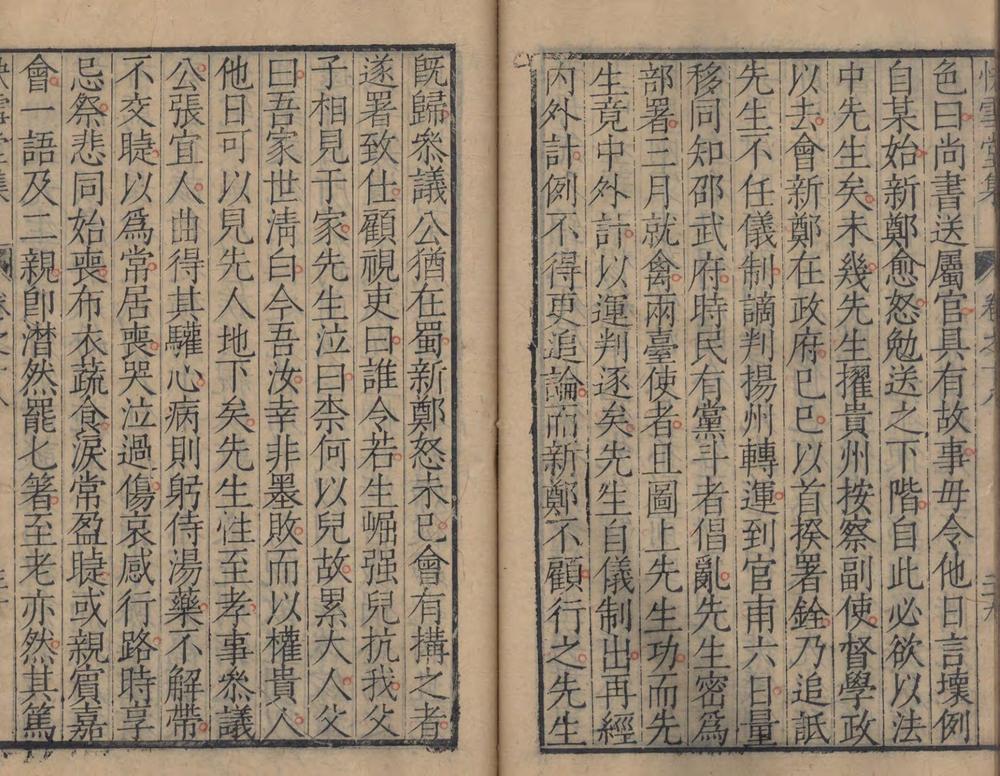 快雪堂集 卷之十八
色曰尚書送屬官具有故事毋令他日言壞例
自某始新鄭愈怒勉送之下階自此必欲以法
中先生矣未幾先生擢貴州按察副使督學政
以去會新鄭在政府巳巳以首揆署銓乃追詆
先生不任儀制謫判揚州轉運到官甫六日量
移同知邵武府時民有黨斗者倡亂先生密爲
部署三月就禽兩臺使者且圖上先生功而先
生竟中外計以運判逐矣先生自儀制出再經
内外計例不得更追論而新鄭不顧行之先生
旣歸叅議公猶在蜀新鄭怒未巳會有搆之者
遂署致仕顧視吏曰誰令若生崛强兒抗我父
子相見于家先生泣曰柰何以兒故累大人父
曰吾家世淸白今吾汝幸非墨敗而以權貴人
他日可以見先人地下矣先生性至孝事叅議
公張宜人曲得其驩心病則躬侍湯藥不解帶
不交睫以爲常居喪哭泣過傷哀感行路時享
忌祭悲同始喪布衣蔬食淚常盈睫或親賓嘉
會一語及二親卽潸然罷七箸至老亦然其篤
快雪堂集 卷之十八